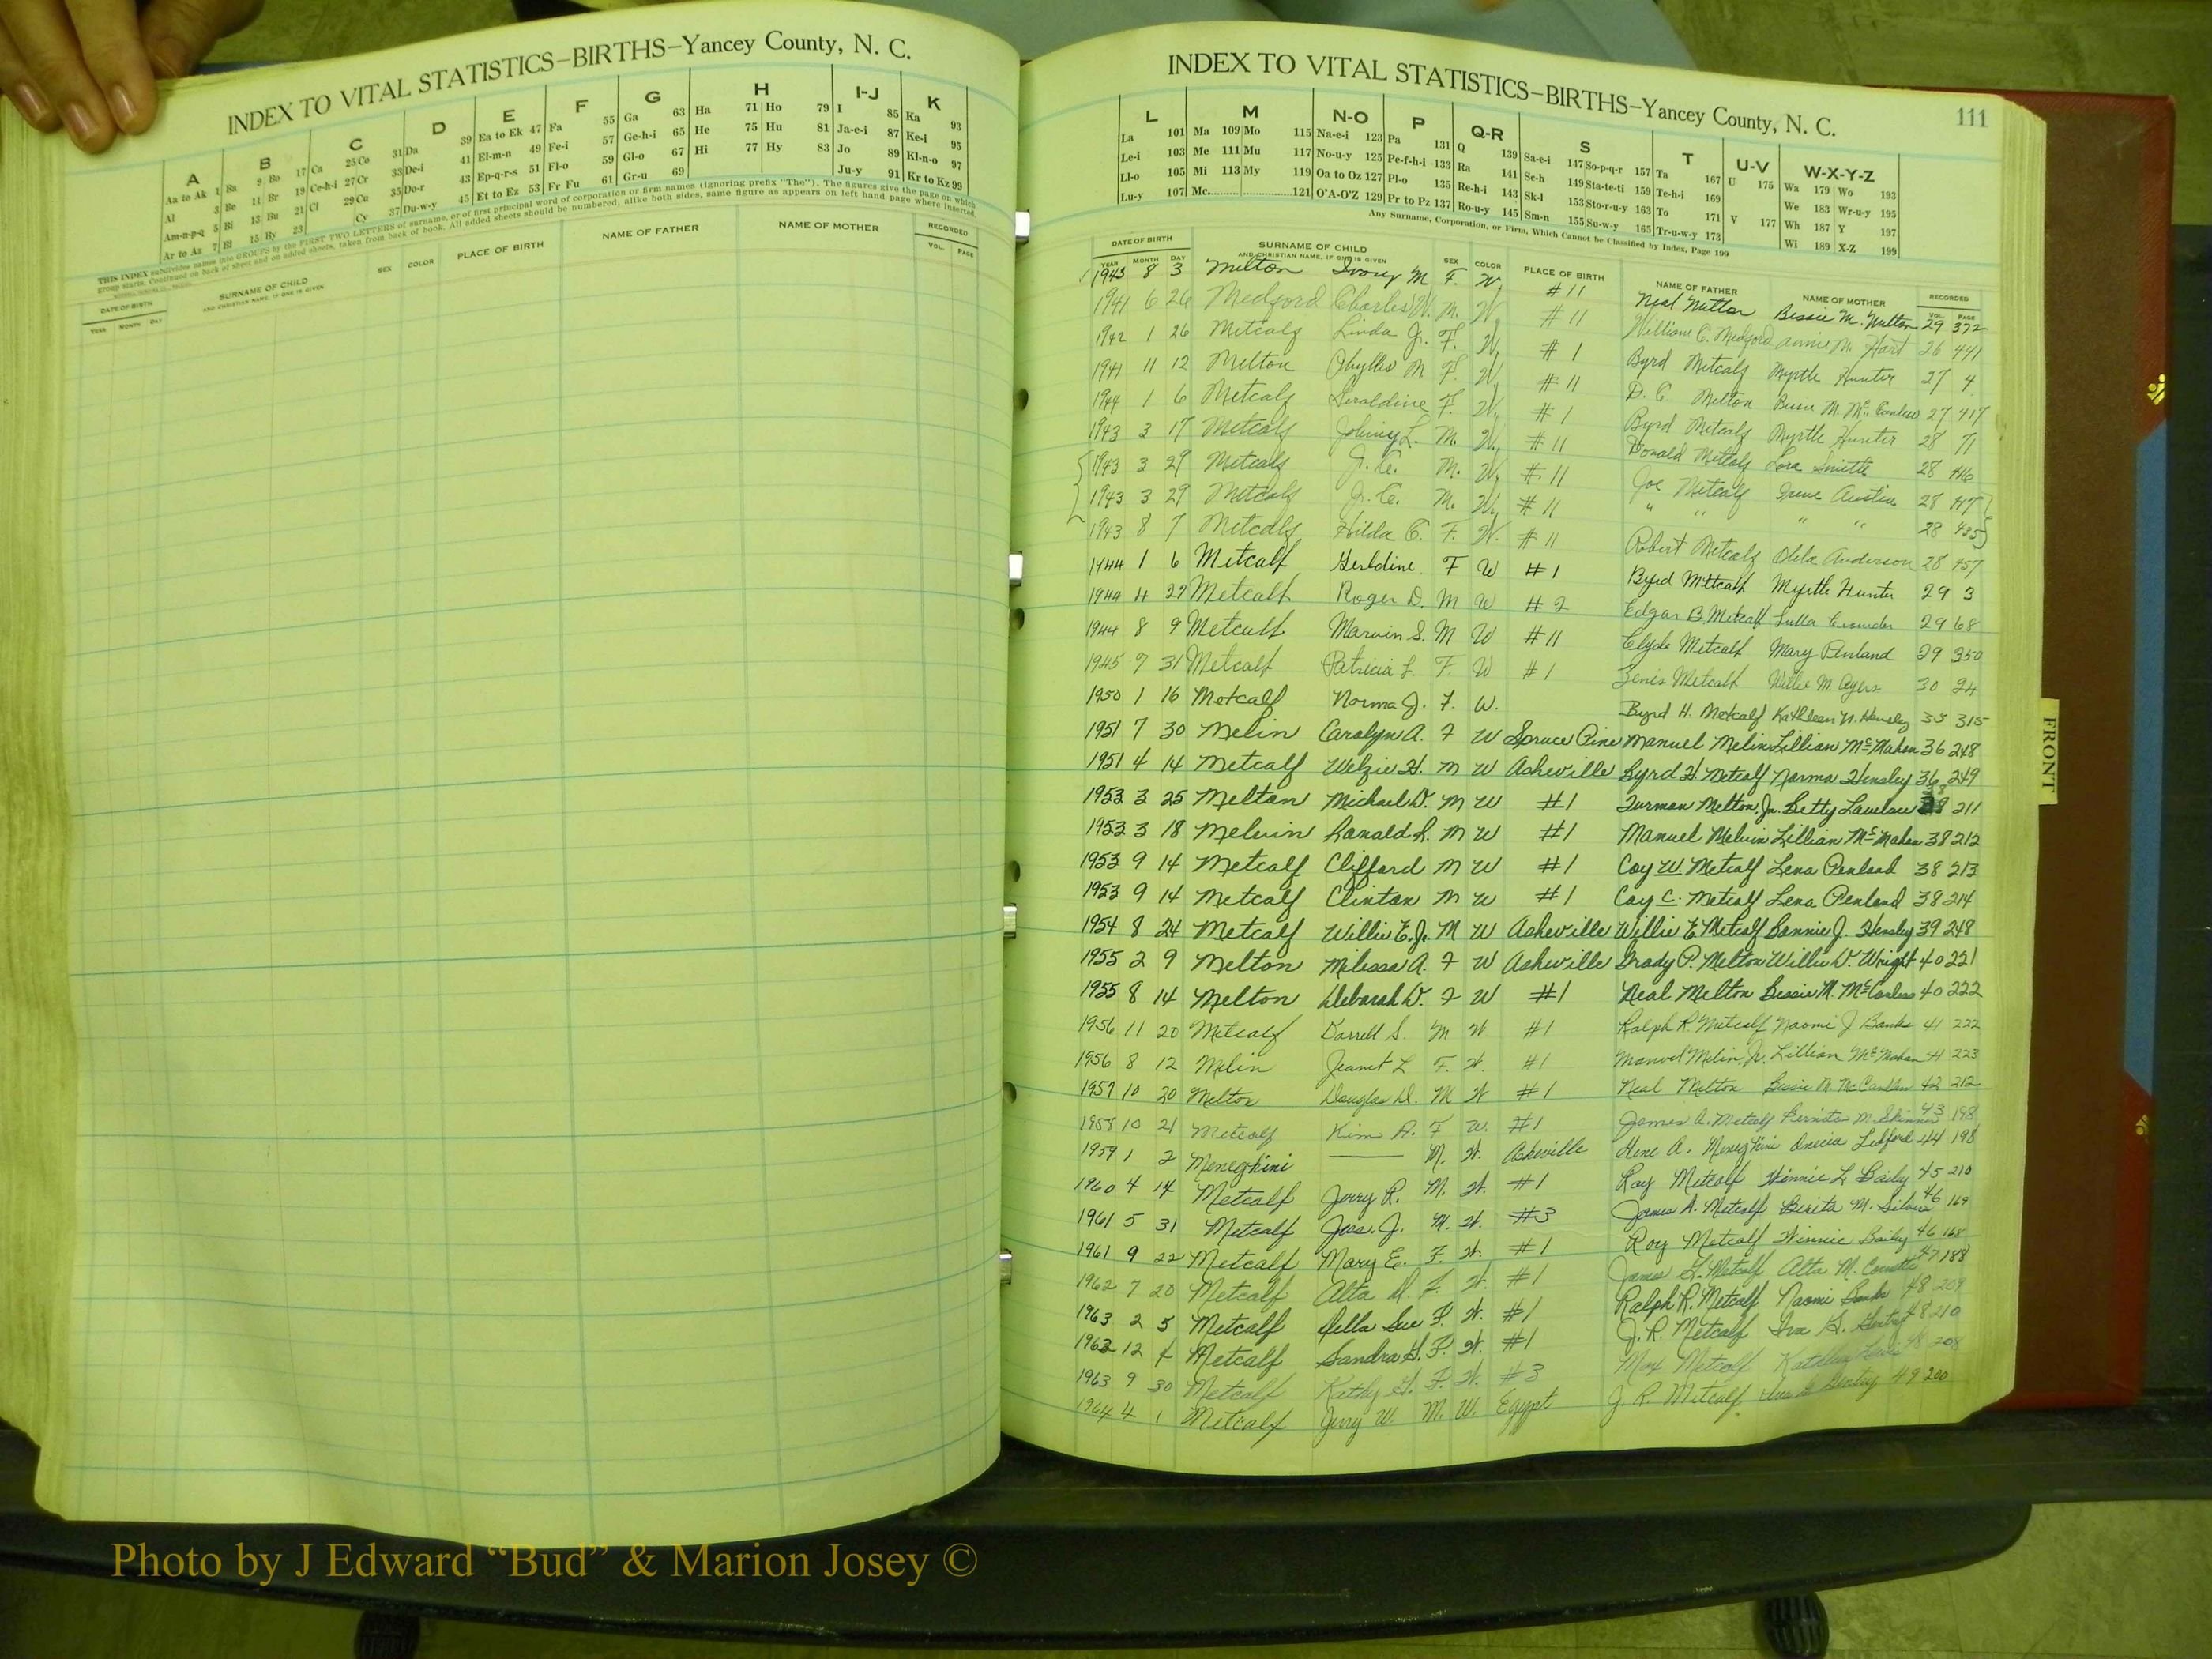 INDEX TO VITAL STATISTICS–BIRTHS–Yancey County, N. C.
A B C D E F G H I-J K
Aa to Ak 1 Ba 9 Bo 17 Ca 25 Co 31 Da 39 Ea to Ek 47 Fa 55 Ga 63 Ha 71 Ho 79 I 85 Ka 93
Al 3 Be 11 Br 19 Ce-h-i 27 Cr 33 De-i 41 El-m-n 49 Fe-i 57 Ge-h-i 65 He 75 Hu 81 Ja-e-i 87 Ke-i 95
Am-n-p-q 5 Bi 13 Bu 21 Cl 29 Cu 35 Do-r 43 Ep-q-r-s 51 Fl-o 59 Gl-o 67 Hi 77 Hy 83 Jo 89 Kl-n-o 97
Ar to Az 7 Bl 15 By 23 Cy 37 Du-w-y 45 Et to Ez 53 Fr Fu 61 Gr-u 69 Ju-y 91 Kr to Kz 99
THIS INDEX subdivides names into GROUPS by the FIRST TWO LETTERS of surname, or of first principal word of corporation or firm names (ignoring prefix "The"). The figures give the page on which
group starts. Continued on back of sheet and on added sheets, taken from back of book. All added sheets should be numbered, alike both sides, same figure as appears on left hand page where inserted.
DATE OF BIRTH SURNAME OF CHILD SEX COLOR PLACE OF BIRTH NAME OF FATHER NAME OF MOTHER RECORDED
YEAR MONTH DAY AND CHRISTIAN NAME, IF ONE IS GIVEN VOL. PAGE
INDEX TO VITAL STATISTICS–BIRTHS–Yancey County, N. C. 111
L M N-O P Q-R S T U-V W-X-Y-Z
La 101 Ma 109 Mo 115 Na-e-i 123 Pa 131 Q 139 Sa-e-i 147 So-p-q-r 157 Ta 167 U 175 Wa 179 Wo 193
Le-i 103 Me 111 Mu 117 No-u-y 125 Pe-f-h-i 133 Ra 141 Sc-h 149 Sta-te-ti 159 Te-h-i 169 We 183 Wr-u-y 195
Ll-o 105 Mi 113 My 119 Oa to Oz 127 Pl-o 135 Re-h-i 143 Sk-l 153 Sto-r-u-y 163 To 171 V 177 Wh 187 Y 197
Lu-y 107 Mc 121 O'A-O'Z 129 Pr to Pz 137 Ro-u-y 145 Sm-n 155 Su-w-y 165 Tr-u-w-y 173 Wi 189 X-Z 199
Any Surname, Corporation, or Firm, Which Cannot be Classified by Index, Page 199
DATE OF BIRTH SURNAME OF CHILD SEX COLOR PLACE OF BIRTH NAME OF FATHER NAME OF MOTHER RECORDED
YEAR MONTH DAY AND CHRISTIAN NAME, IF ONE IS GIVEN VOL. PAGE
1943 8 3 Melton M F. W. #11 Neal Bessie M. 29 372
1941 6 26 Medford Charles W. M. W. #11 William C. Medford Annie M. Hart 26 441
1942 1 26 Metcalf Linda J. F. W. #1 Byrd Metcalf Myrtle Hunter 27 4
1941 11 12 Melton Phyllis M F. W. #11 D. C. Melton Bessie M. 27 417
1944 1 6 Metcalf Geraldine F. W. #1 Byrd Metcalf Myrtle Hunter 28 71
1943 3 17 Metcalf Johny L. M. W. #11 Donald Metcalf Lora Smith 28
1943 3 29 Metcalf J. C. M. W. #11 Joe Metcalf Irene Austin 28
1943 3 29 Metcalf J. C. M. W. #11 " " " " 28
1943 8 7 Metcalf Hilda C. F. W. #11 Robert Metcalf Anderson 28 457
1944 1 6 Metcalf Gerldine F W #1 Byrd Metcalf Myrtle Hunter 29 3
1944 4 27 Metcalf Roger D. M W #2 Edgar B. Metcalf 29 68
1944 8 9 Metcalf Marvin S. M W #11 Clyde Metcalf Mary Penland 29 350
1945 7 31 Metcalf Patricia L. F. W #1 Zenis Metcalf Willie M. Ayers 30 24
1950 1 16 Metcalf Norma J. F. W. Byrd H. Metcalf Kathleen N. Hensley 35 315
1951 7 30 Melin Carolyn A. F W Spruce Pine Manuel Melin Lillian McMahan 36 248
1951 4 14 Metcalf Welzie H. M W Asheville Byrd H. Metcalf Norma Hensley 36 249
1953 3 25 Melton Michael D. M W #1 Furman Melton, Jr. Betty Lovelace 38 211
1953 3 18 Melvin Ronald L. M W #1 Manuel Melvin Lillian McMahan 38 212
1953 9 14 Metcalf Clifford M W #1 Coy W. Metcalf Lena Penland 38 213
1953 9 14 Metcalf Clinton M W #1 Coy C. Metcalf Lena Penland 38 214
1954 8 24 Metcalf Willie E. Jr. M W Asheville Willie E Metcalf Bonnie J. Hensley 39 248
1955 2 9 Melton Milissa A. F W Asheville Grady P. Melton Willie D. Wright 40 221
1955 8 14 Melton Deborah D. F W #1 Neal Melton Bessie M. McCanless 40 222
1956 11 20 Metcalf Darrell S. M W #1 Ralph R. Metcalf Naomi J Banks 41 222
1956 8 12 Melin Jeanet L F. W. #1 Manuel Melin, Jr. Lillian McMahan 41 223
1957 10 20 Melton Douglas D. M W #1 Neal Melton Bessie M. McCanless 42 212
1958 10 21 Metcalf Kim A. F W. #1 James A. Metcalf M. Skinner 43 198
1959 1 2 Meneghini —— M. W. Asheville Gene A. Meneghini Ledford 44 198
1960 4 14 Metcalf Jerry R. M. W. #1 Roy Metcalf Winnie L Baily 45 210
1961 5 31 Metcalf Jess. J. M. W. #3 James A. Metcalf M. 46 169
1961 9 22 Metcalf Mary E. F. W. #1 Roy Metcalf Winnie Baily 46 168
1962 7 20 Metcalf Alta M. F. W. #1 James L. Metcalf Alta M. 47 188
1963 2 5 Metcalf Della Sue F. W. #1 Ralph R. Metcalf Naomi Banks 48 209
1963 12 Metcalf Sandra G. F. W. #1 J. R. Metcalf Iva Gentry 48 210
1963 9 30 Metcalf Kathy G. F. W. #3 Max Metcalf 48 208
1964 4 1 Metcalf Jerry W. M. W. Egypt J. R. Metcalf Gentry 49 200
FRONT
Photo by J Edward “Bud” & Marion Josey ©